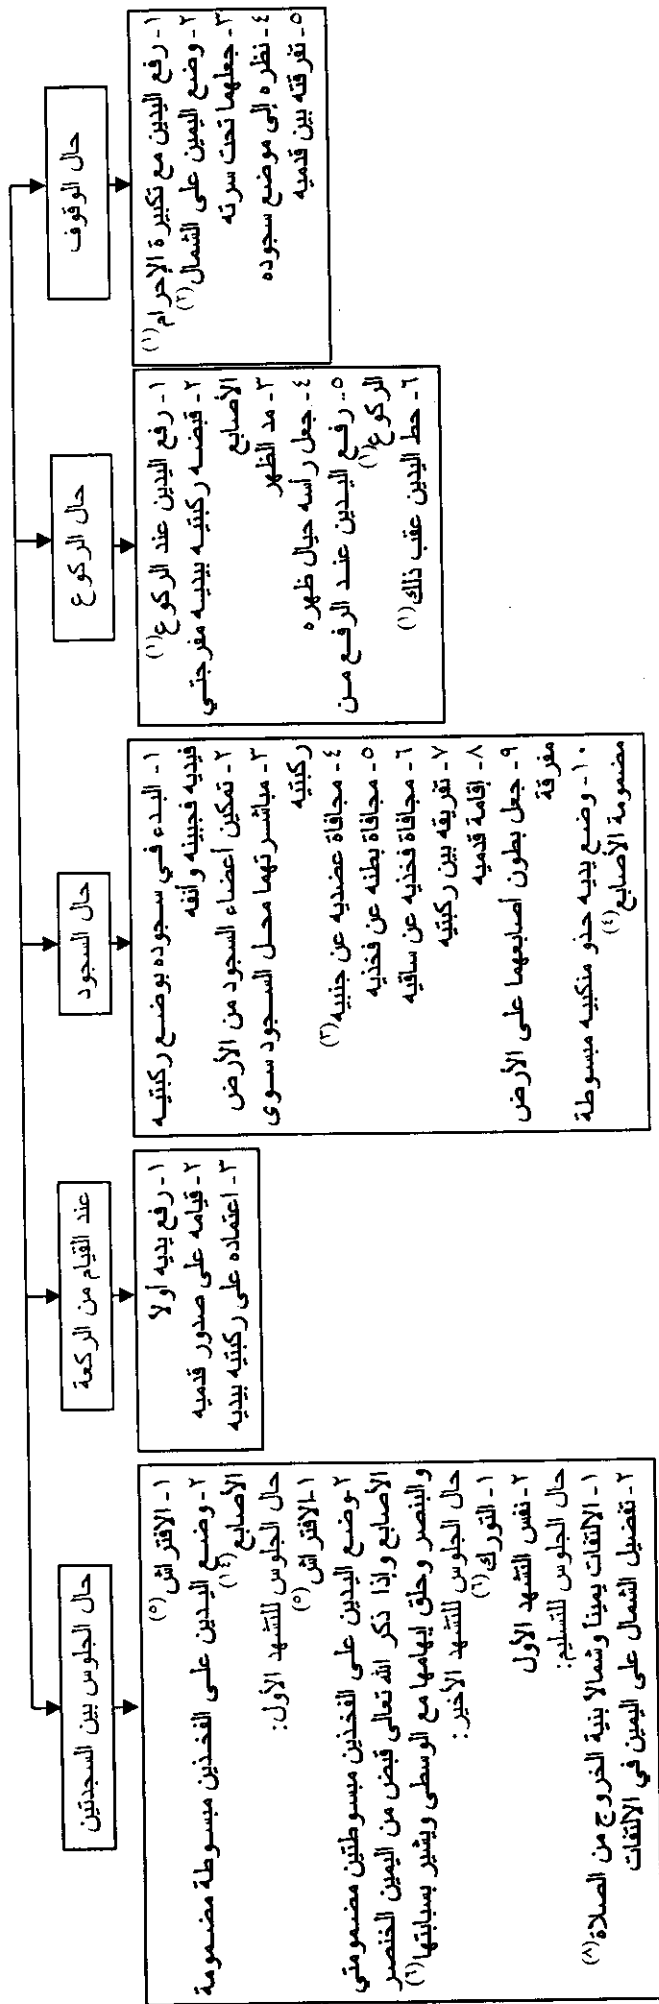 حال الوقوف
١- رفع اليدين مع تكبيرة الإحرام(١)
٢- وضع اليمين على الشمال(٢)
٣- جعلهما تحت سرته
٤- نظره إلى موضع سجوده
٥- تفرقته بين قدميه
حال الركوع
١- رفع اليدين عند الركوع(١)
٢- قبضه ركبتيه بيديه مفرجتي
الأصابع
٣- مد الظهر
٤- جعل رأسه حيال ظهره
٥- رفع اليدين عند الرفع من
الركوع(١)
٦- حط اليدين عقب ذلك(١)
حال السجود
١- البدء في سجوده بوضع ركبتيه
فيديه فجبينه وأنفه
٢- تمكين أعضاء السجود من الأرض
٣- مباشرتهما محل السجود سوى
ركبتيه
٤- مجافاة عضديه عن جنبيه(٣)
٥- مجافاة بطنه عن فخذيه
٦- مجافاة فخذيه عن ساقيه
٧- تفريقه بين ركبتيه
٨- إقامة قدميه
٩- جعل بطون أصابعهما على الأرض
مفرقة
١٠- وضع يديه حذو منكبيه مبسوطة
مضمومة الأصابع(٤)
عند القيام من الركعة
١- رفع يديه أولا
٢- قيامه على صدور قدميه
٣- اعتماده على ركبتيه بيديه
حال الجلوس بين السجدتين
١- الافتراش(٥)
٢- وضع اليدين على الفخذين مبسوطة مضمومة
الأصابع(١٤)
حال الجلوس للتشهد الأول:
١- الافتراش(٥)
٢- وضع اليدين على الفخذين مبسوطتين مضمومتي
الأصابع وإذا ذكر الله تعالى قبض من اليمين الخنصر
والبنصر وحلق إبهامها مع الوسطى ويشير بسبابتها(٦)
حال الجلوس للتشهد الأخير:
١- التورك(٦)
٢- نفس التشهد الأول
حال الجلوس للتسليم:
١- الالتفات يمينا وشمالا بنية الخروج من الصلاة(٨)
٢- تفضيل الشمال على اليمين في الالتفات